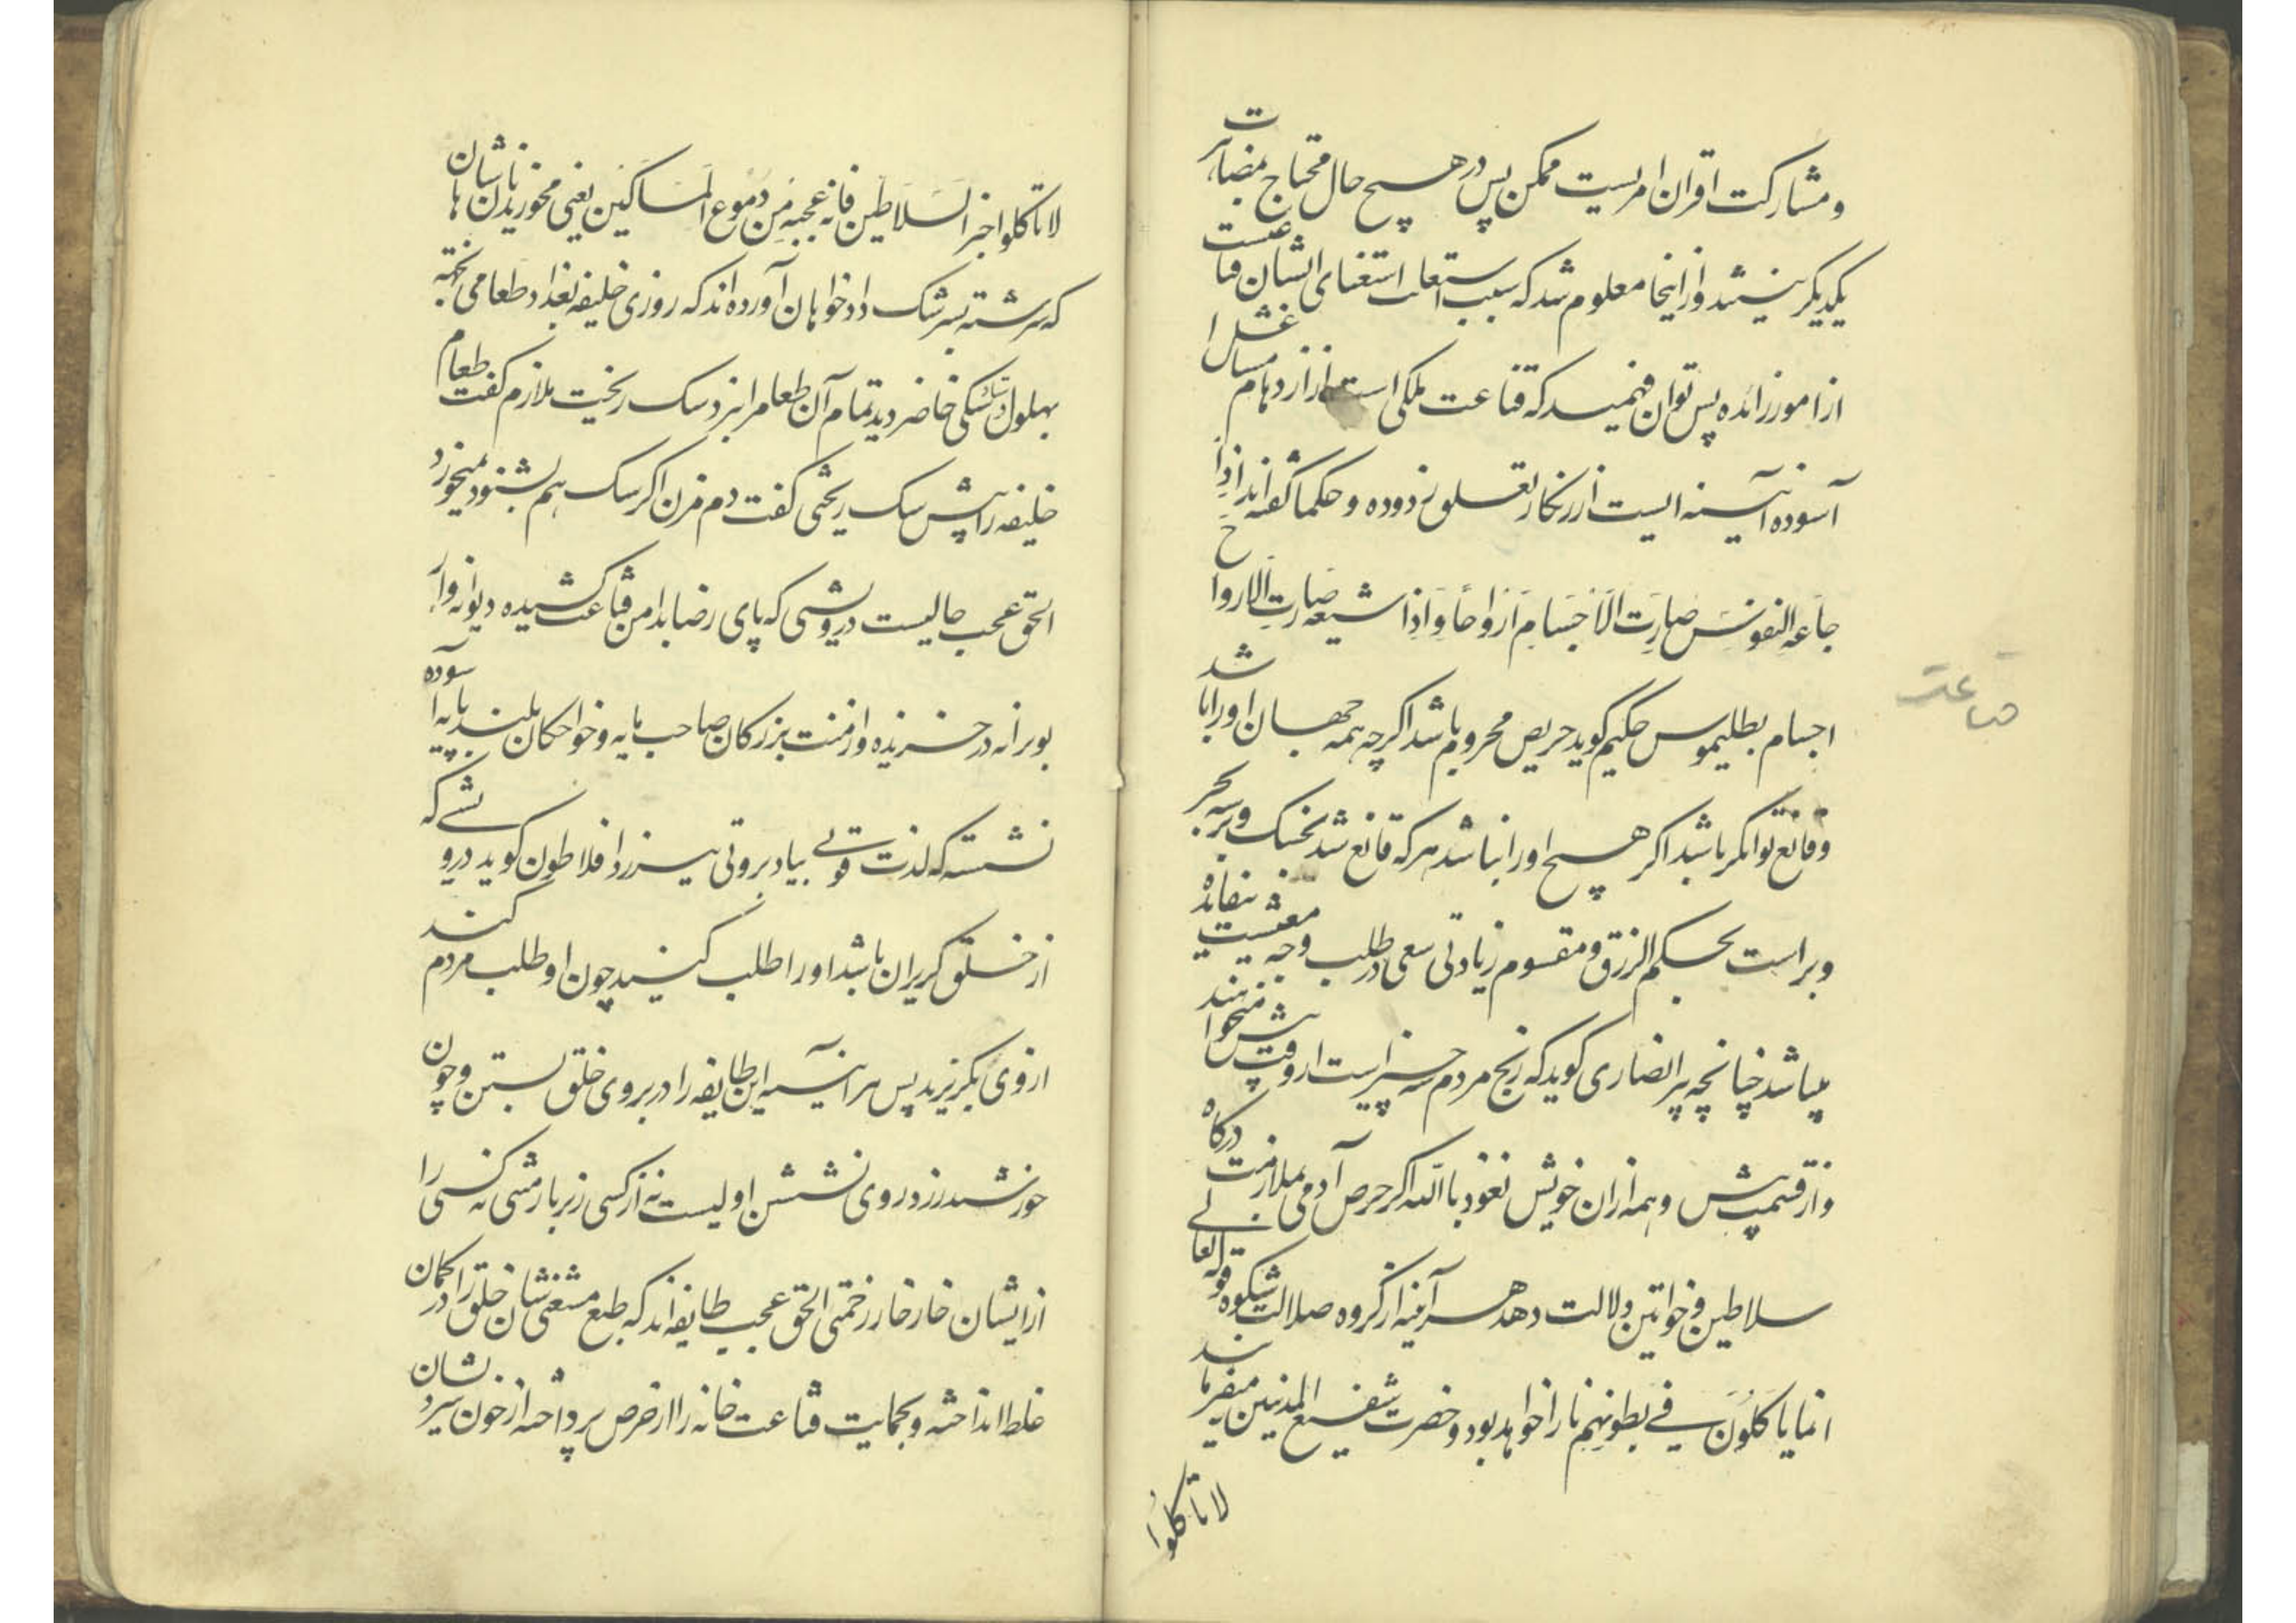 و مشارکت اقران امریست ممکن پس در هیچ حال محتاج بمضایرت
یکدیگر نیستند و از اینجا معلوم شد که سبب استغنای ایشان قناعتست
از امور زائده پس توان فهمید که قناعت ملکی است از ازدهام مسال
آسوده آئینه ایست از زنکار تعلق زدوده و حکما گفته اند اذا
جاعة النفوس صارت الاجسام ارواحا و اذا شبعه صارت الارواح
اجسام بطلیموس حکیم کوید حریص محروم باشد اکرچه همه جهان او را باشد
و قانع توانکر باشد اکر هیچ او را نباشد هر که قانع شد بخشک و تر شه بحر
و بر است بحکم الرزق و مقسوم زیادتی سعی در طلب وجه معیشت بیفائده
میباشد چنانچه پیر انصاری کوید که رنج مردم سه چیز است از وقت پیش میخواهند
و از قسمت پیش و همه از ان خویش نعوذ باالله اکر حرص آدمی بملازمت درکاه
سلاطین و خواتین دلالت دهد هر آینه از کروه ضلالت شکوه قوله تعالی
انما یاکلون فی بطونهم نارا خواهد بود و حضرت شفیع المذنبین میفرمایند
لا تاکلوا
قناعت
لا تاکلوا خبز السلاطین فانه عجبه من دموع المساکین یعنی مخورید نان هاشان
که سرشته بسرشک دادخواهان آورده اند که روزی خلیفه بغداد طعامی پخته
بهلول سکی حاضر دید تمام آن طعام را نزد سک ریخت ملازم کفت طعام
خلیفه را پیش سک ریختی کفت دم مزن اکر سک هم بشنود نمیخورد
الحق عجب حالیست درویشی که پای رضا بدامن قناعت کشیده دیوانه وار
بویرانه در خزیده و از منت بزرکان صاحب مایه و خواجکان بلند پایه آسوده
نشسته که لذت قوتی بیاد بروتی نیرزد افلاطون کوید درویشی که
از خلق کریزان باشد او را طلب کنید چون او طلب مردم کند
از وی بکریزید پس هر آئینه این طایفه را در بروی خلق بستن و چون
خورشید زرد روی نشستن اولیست نه از کسی زیر بار منتی نه کسی را
از ایشان خار خار زخمتی الحق عجب طایفه اند که طبع مستغنی شان خلق را در کمان
غلط انداخته و بحمایت قناعت خانه را از حرص پرداخته از خون سرد نشان